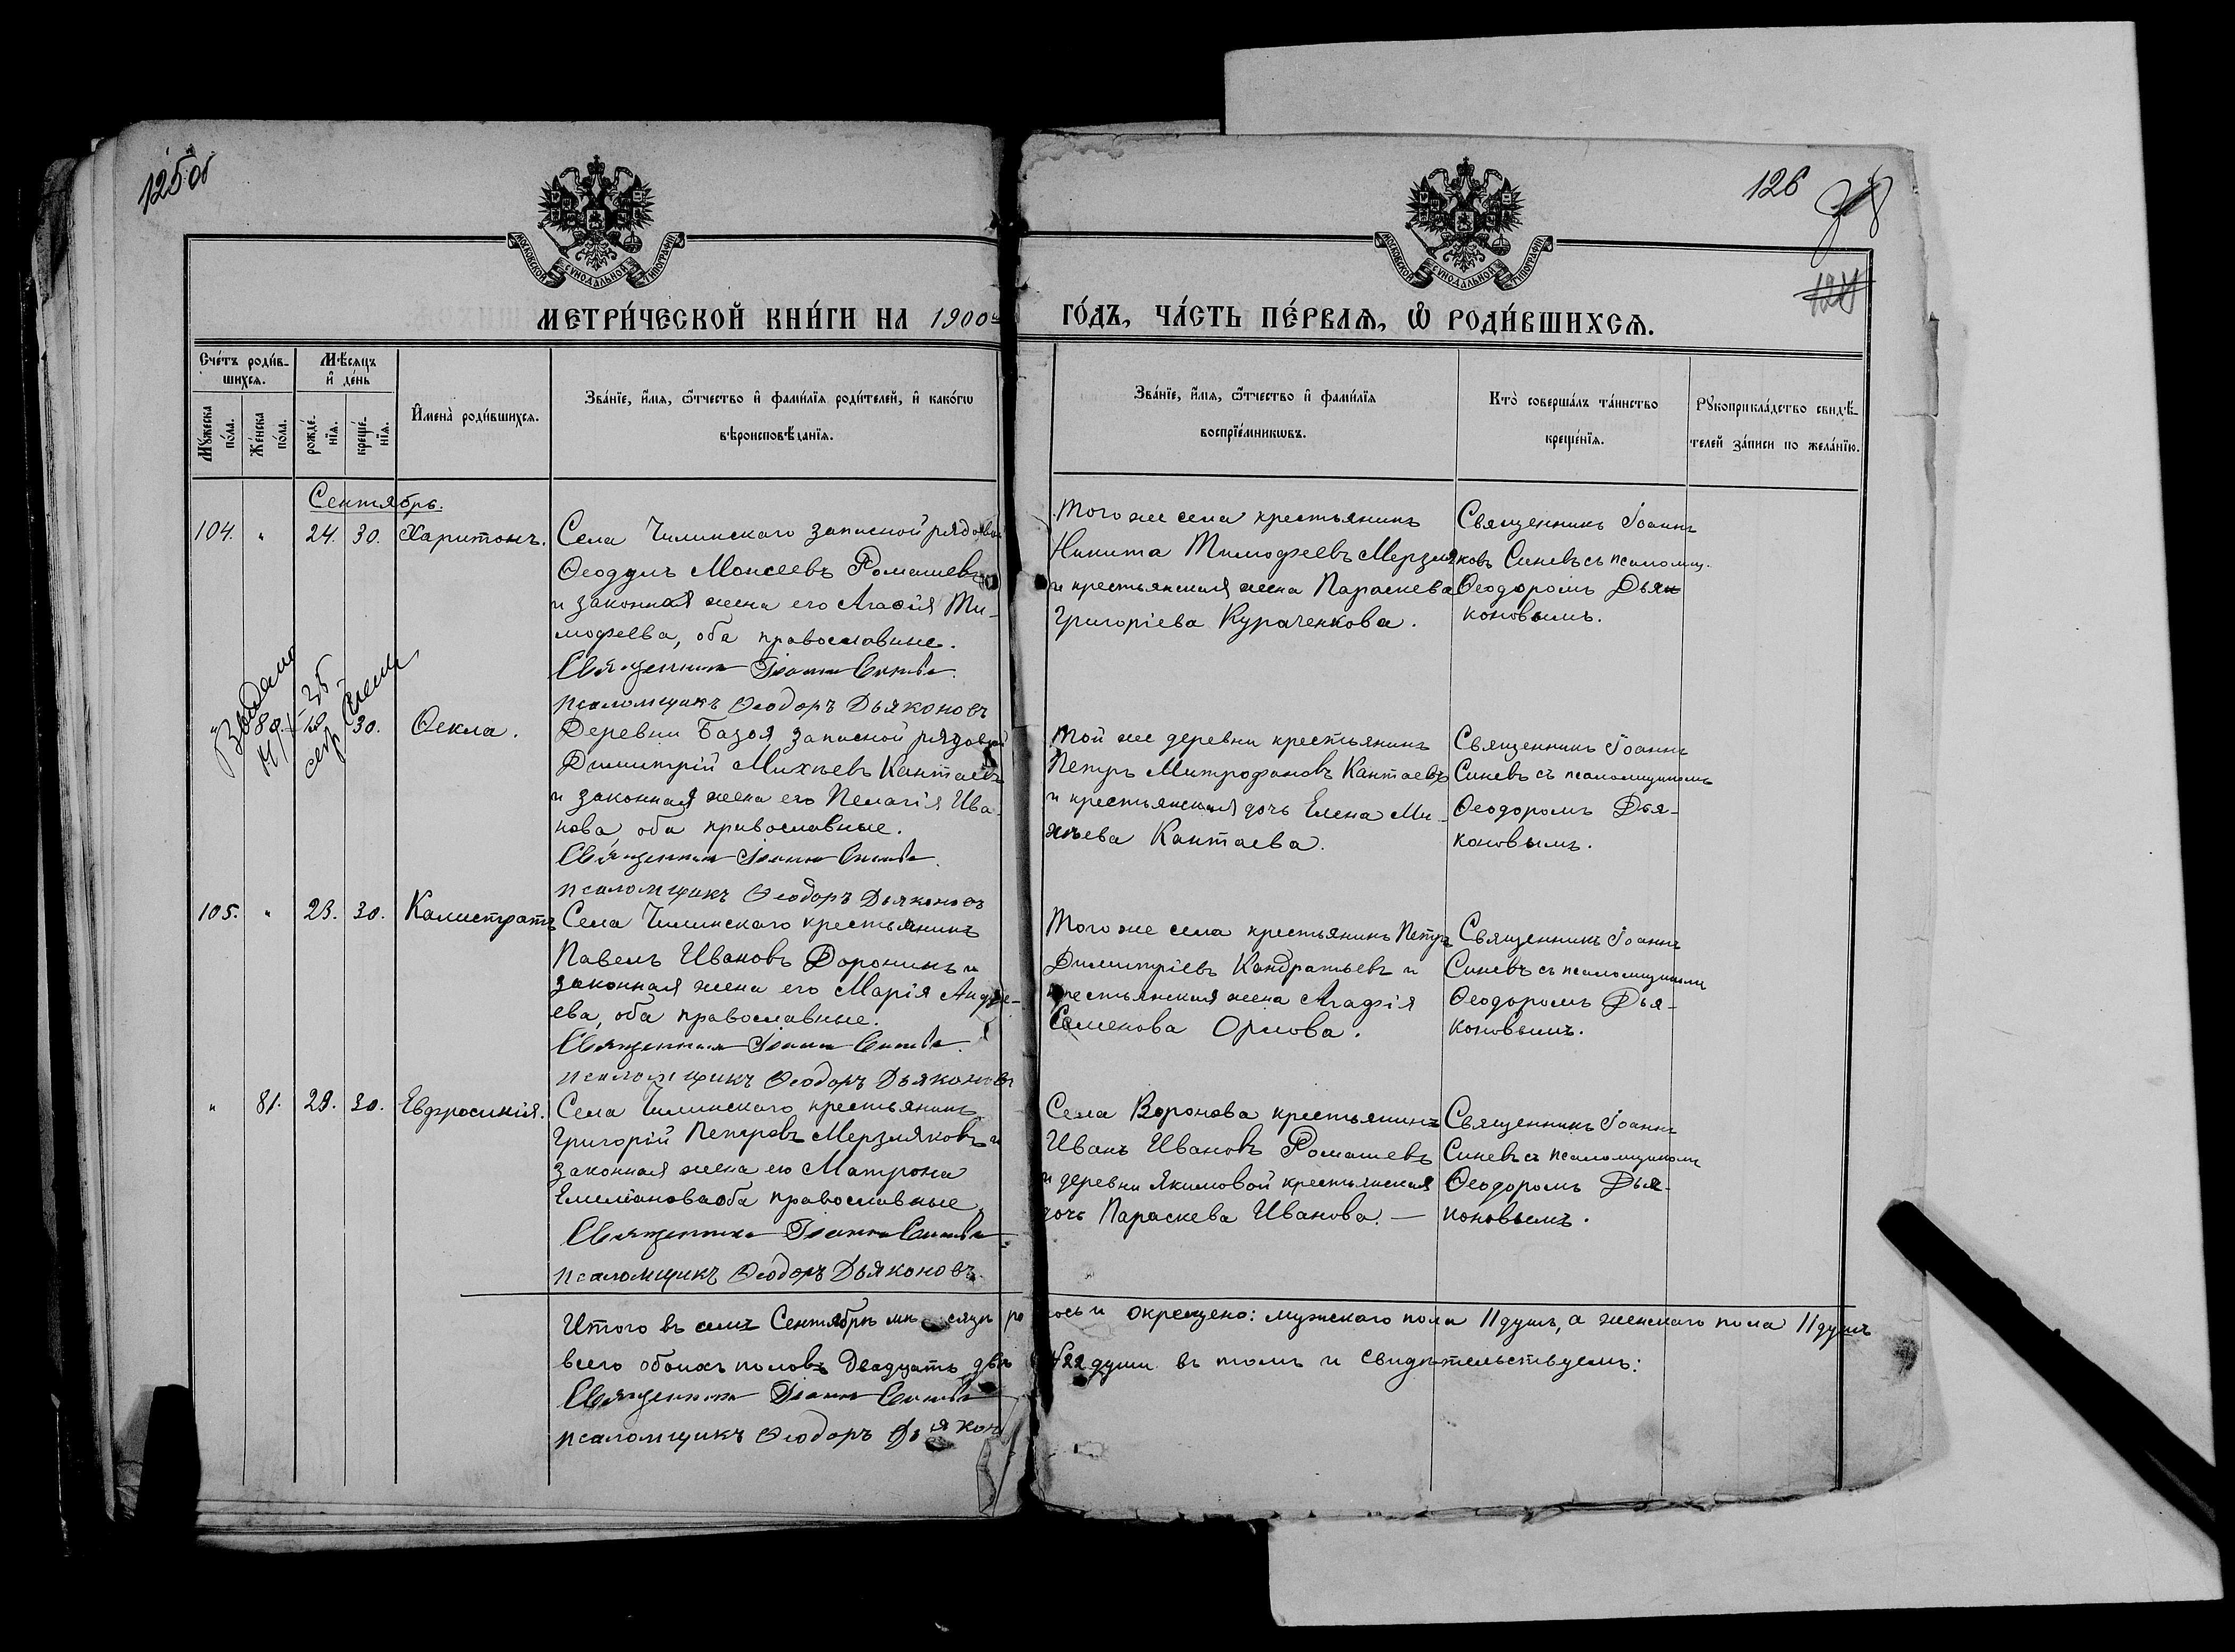 125об
126
МОСКОВСКОЙ СѴНОДАЛЬНОЙ ТИПОГРАФІИ
МОСКОВСКОЙ СѴНОДАЛЬНОЙ ТИПОГРАФІИ
МЕТРИ́ЧЕСКОЙ КНИ́ГИ НА 1900й ГО́ДЪ, ЧА́СТЬ ПЕ́РВАЯ, Ѡ РОДИ́ВШИХСЯ.
Сче́тъ роди́в-
шихся.
Мѣ́сяцъ
и҆ де́нь
Мꙋ́жеска
по́ла.
Же́нска
по́ла.
рожде́-
нїя.
креще́-
нїя.
И҆мена̀ роди́вшихся.
Зва́нїе, и҆́мя, ѻ҆́тчество и҆ фами́лїя роди́телей, и҆ како́гѡ
вѣроисповѣ́данїя.
Зва́нїе, и҆́мя, ѻ҆́тчество и҆ фами́лїя
воспрїе́мникѡвъ.
Кто̀ соверша́лъ та́инство
креще́нїя.
Рꙋкоприкла́дство свидѣ́-
телей за́писи по жела́нїю.
Сентябрь.
104. " 24. 30. Харитонъ.
Села Чилинскаго запасной рядовой
Ѳеодулъ Моисеевъ Ромашевъ
и законная жена его Агафія Ти-
мофеева, оба православные.
Священникъ Іоаннъ Синевъ.
псаломщикъ Ѳеодоръ Дьяконовъ
Того же села крестьянинъ
Никита Тимофеевъ Мерзляковъ
и крестьянская жена Параскева
Григоріева Кураченкова.
Священникъ Іоаннъ
Синевъ съ псаломщ.
Ѳеодоромъ Дьяк
коновымъ.
Выдано
30. Ѳекла.
Деревни Базоя запасной рядовой
Димитрій Михѣевъ Кантаевъ
и законная жена его Пелагія Ива-
нова оба православные.
Священникъ Іоаннъ Синевъ.
псаломщикъ Ѳеодоръ Дьяконовъ
Той же деревни крестьянинъ
Петръ Митрофановъ Кантаевъ
и крестьянская дочь Елена Ми-
хѣева Кантаева.
Священникъ Іоаннъ
Синевъ съ псаломщикомъ
Ѳеодоромъ Дья-
коновымъ.
105. " 23. 30. Калистратъ
Села Чилинскаго крестьянинъ
Павелъ Ивановъ Доронинъ и
законная жена его Марія Андре-
ева, оба православные.
Священникъ Іоаннъ Синевъ.
псаломщикъ Ѳеодоръ Дьяконовъ
Того же села крестьянинъ Петръ
Димитріевъ Кондратьевъ и
крестьянская жена Агафія
Семенова Орлова.
Священникъ Іоаннъ
Синевъ съ псаломщикомъ
Ѳеодоромъ Дья-
коновымъ.
" 81. 28. 30. Евфросинія.
Села Чилинскаго крестьянинъ
Григорій Петровъ Мерзляковъ и
законная жена его Матрона
Емеліанова оба православные.
Священникъ Іоаннъ Синевъ
псаломщикъ Ѳеодоръ Дьяконовъ.
Села Воронова крестьянинъ
Иванъ Ивановъ Ромашевъ
и деревни Якимовой крестьянская
дочь Параскева Иванова. —
Священникъ Іоаннъ
Синевъ съ псаломщикомъ
Ѳеодоромъ Дья-
коновымъ.
Итого въ семъ Сентябрѣ мѣсяцѣ ро лось и окрещено: мужскаго пола 11 душъ, а женскаго пола 11 душъ
всего обоихъ половъ двадцать двѣ 22 души въ томъ и свидѣтельствуемъ:
Священникъ Іоаннъ Синевъ
псаломщикъ Ѳеодоръ Дьякон